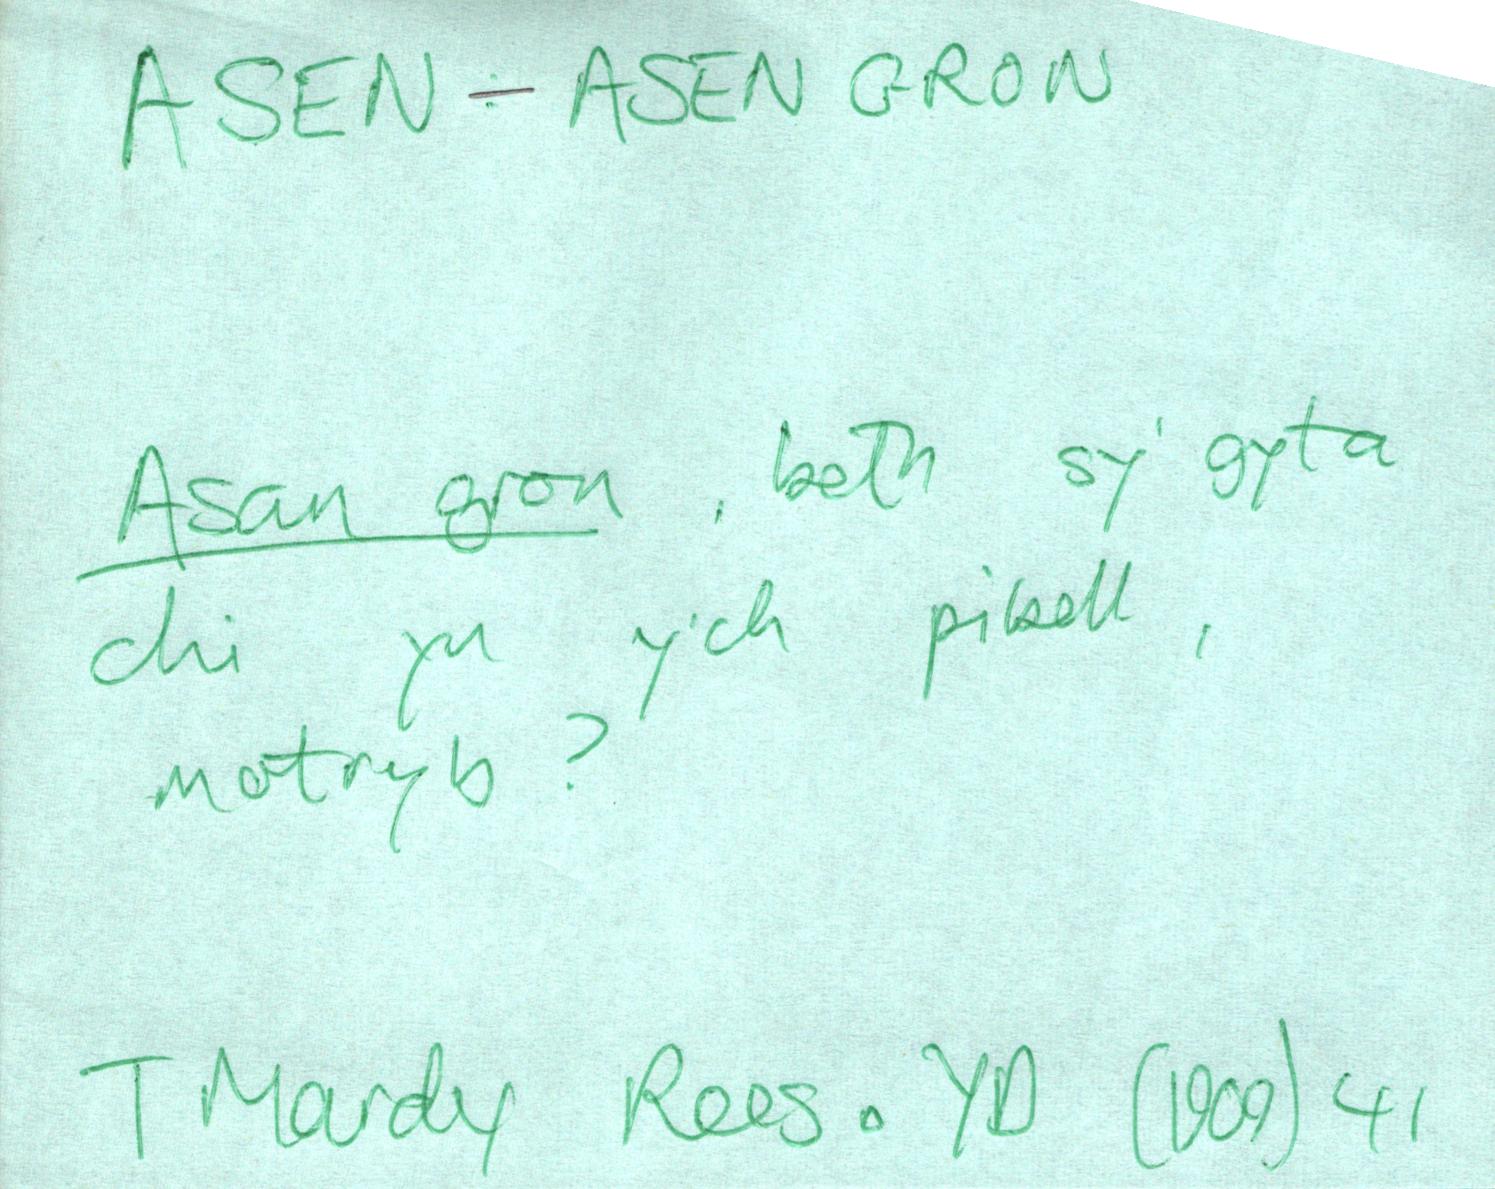 ASEN - ASEN GRON
Asan gron, beth sy' gyta
chi yn y'ch pibell,
motryb?
T Mardy Rees. YD (1909) 41